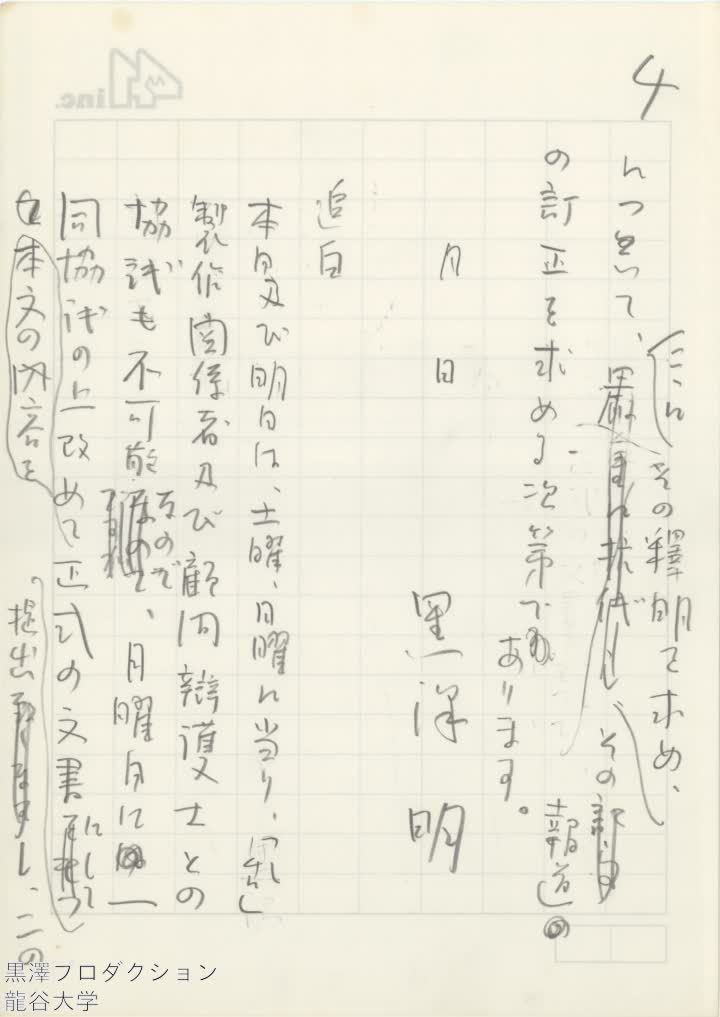 4
について、ここにその釋明を求め、
厳重に抗議し、その
の訂正を求める次第であります。
報道の
月 日
黒澤 明
追白
本日及び明日は、土曜、日曜に当り、「乱」
製作関係者及び顧問辯護士との
協議も不可能なので、月曜日に
同協議の上改めて正式の文書にして
本文の内容を
提出し、この
4 inc.
黒澤プロダクション
龍谷大学